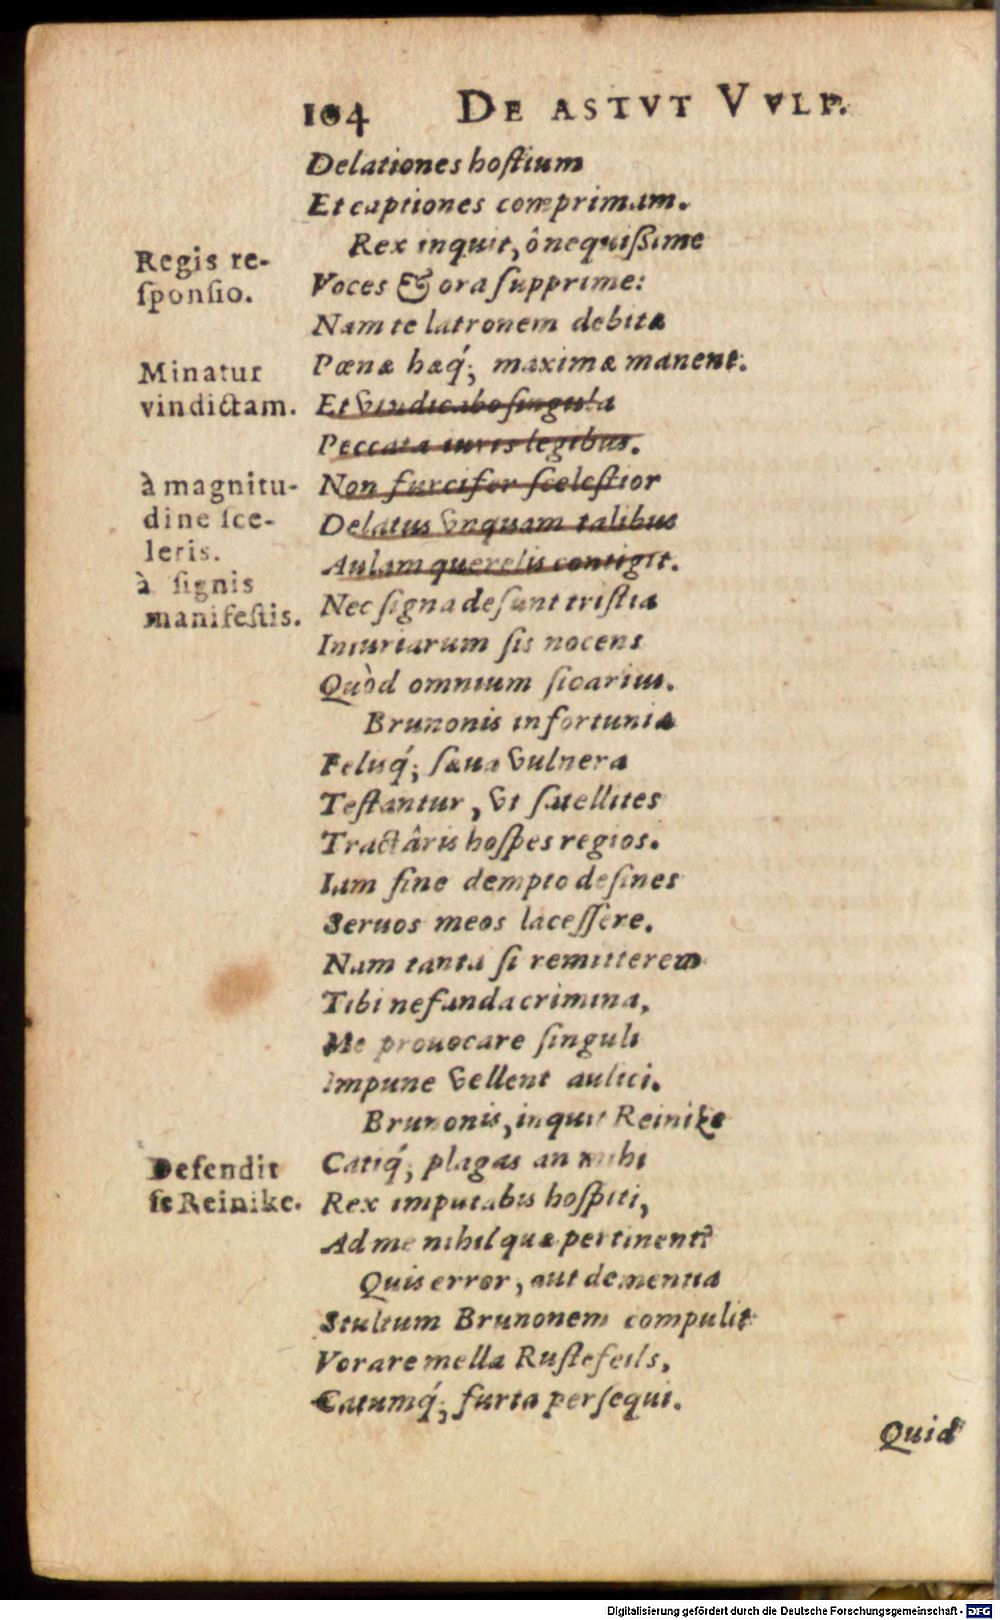 104 DE ASTVT VVLP.
Delationes hoſtium
Et captiones comprimam.
Rex inquit, ô nequiſsime
Regis re-
ſponſio.
Voces & ora ſupprime:
Nam te latronem debitæ
Pœnæ hæq́; maximæ manent.
Minatur
vindictam.
Et vindicabo ſingula
Peccata iuris legibus.
à magnitu-
dine ſce-
leris.
Non furcifer ſceleſtior
Delatus vnquam talibus
Aulam querelis contigit.
à ſignis
manifeſtis.
Nec ſigna deſunt triſtia
Iniuriarum ſis nocens
Quòd omnium ſicarius.
Brunonis infortunia
Feliſq́; ſæua vulnera
Teſtantur, vt ſatellites
Tractâris hoſpes regios.
Iam fine dempto deſines
Seruos meos laceſſere.
Nam tanta ſi remitterem
Tibi nefanda crimina,
Me prouocare ſinguli
Impune vellent aulici.
Brunonis, inquit Reinike
Defendit
ſe Reinike.
Catiq́; plagas an mihi
Rex imputabis hoſpiti,
Ad me nihil quæ pertinent?
Quis error, aut dementia
Stultum Brunonem compulit
Vorare mella Ruſtefeils,
Catumq́; furta perſequi.
Quid
Digitalisierung gefördert durch die Deutsche Forschungsgemeinschaft - DFG